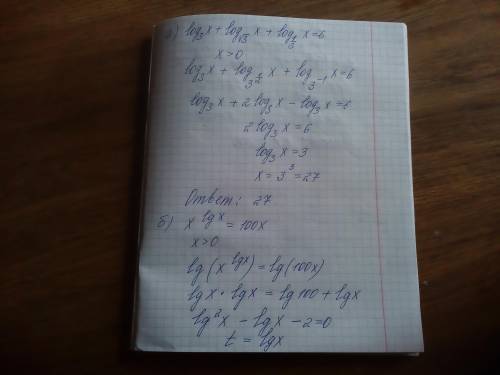 а) log₃x + log_√3 x + log_1/3 x = 6
x > 0
log₃x + log_3^1/2 x + log_3^-1 x = 6
log₃x + 2log₃x - log₃x = 6
2log₃x = 6
log₃x = 3
x = 3³ = 27
Ответ: 27
б) x^lgx = 100x
x > 0
lg(x^lgx) = lg(100x)
lgx · lgx = lg100 + lgx
lg²x - lgx - 2 = 0
t = lgx